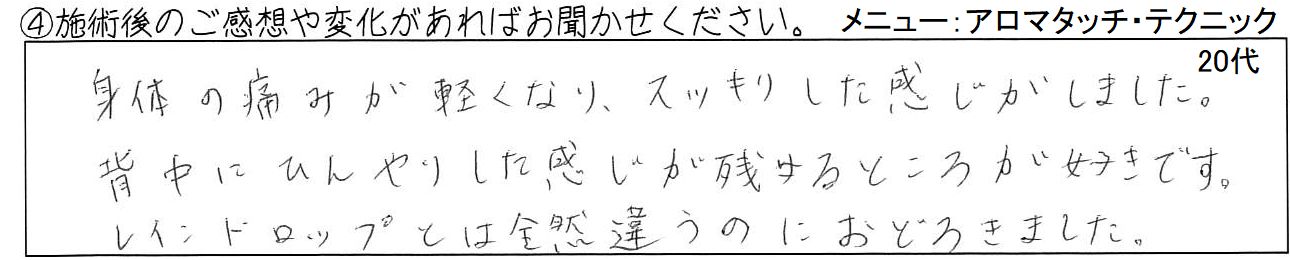 ④施術後のご感想や変化があればお聞かせください。 メニュー：アロマタッチ・テクニック
20代
身体の痛みが軽くなり、スッキリした感じがしました。
背中にひんやりした感じが残けるところが好きです。
レインドロップとは全然違うのにおどろきました。